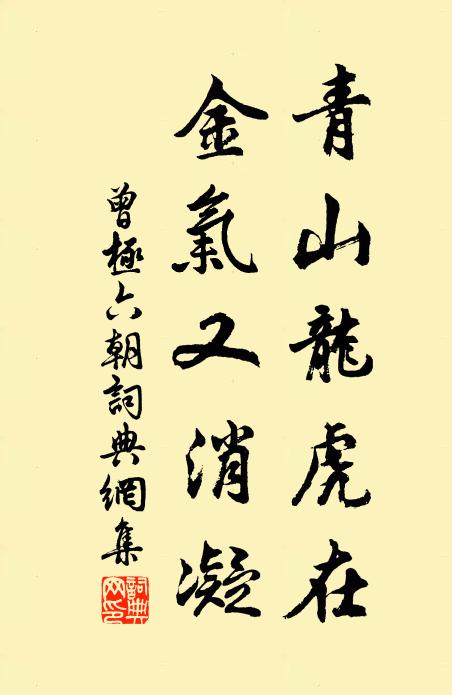 青山龍虎在
金氣又消凝
曾極六朝詞典網集
詞典网印